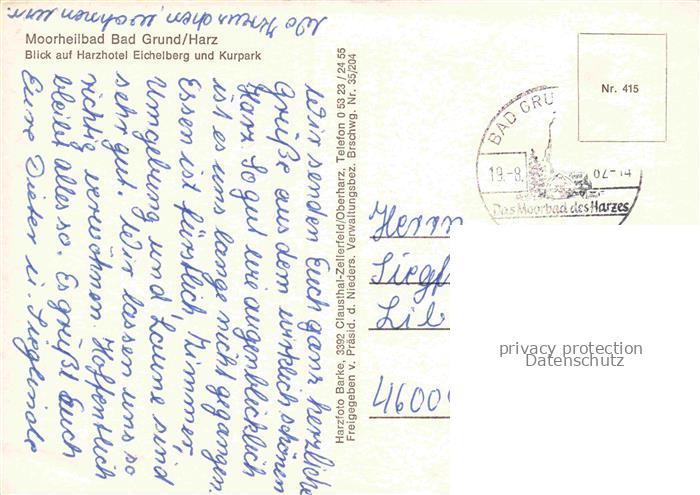 Moorheilbad Bad Grund/Harz
Blick auf Harzhotel Eichelberg und Kurpark
Wir senden Euch ganz herzliche
Grüße aus dem wirklich schönen
Harz. So gut wie augenblicklich
ist es uns lange nicht gegangen.
Essen ist fürstlich, Zimmer,
Umgebung und Laune sind
sehr gut. Wir lassen uns so
richtig verwöhnen. Hoffentlich
bleibt alles so. Es grüßt Euch
Eure Dieter u. Sieglinde
wohnen wir.
Harzfoto Barke, 3392 Clausthal-Zellerfeld/Oberharz, Telefon 0 53 23 / 24 55
Freigegeben v. Präsid. d. Nieders. Verwaltungsbez. Brschwg. Nr. 35/204
Nr. 415
BAD GRU
19.-8.
82-14
Das Moorbad des Harzes
Herrn
Siegf
Lib
4600
privacy protection
Datenschutz